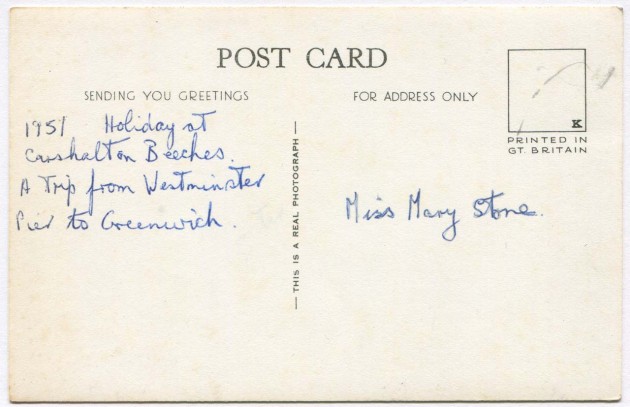 POST CARD
SENDING YOU GREETINGS
FOR ADDRESS ONLY
K
PRINTED IN
GT. BRITAIN
1951 Holiday at
Carshalton Beeches.
A Trip from Westminster
Pier to Greenwich.
THIS IS A REAL PHOTOGRAPH
Miss Mary Stone.